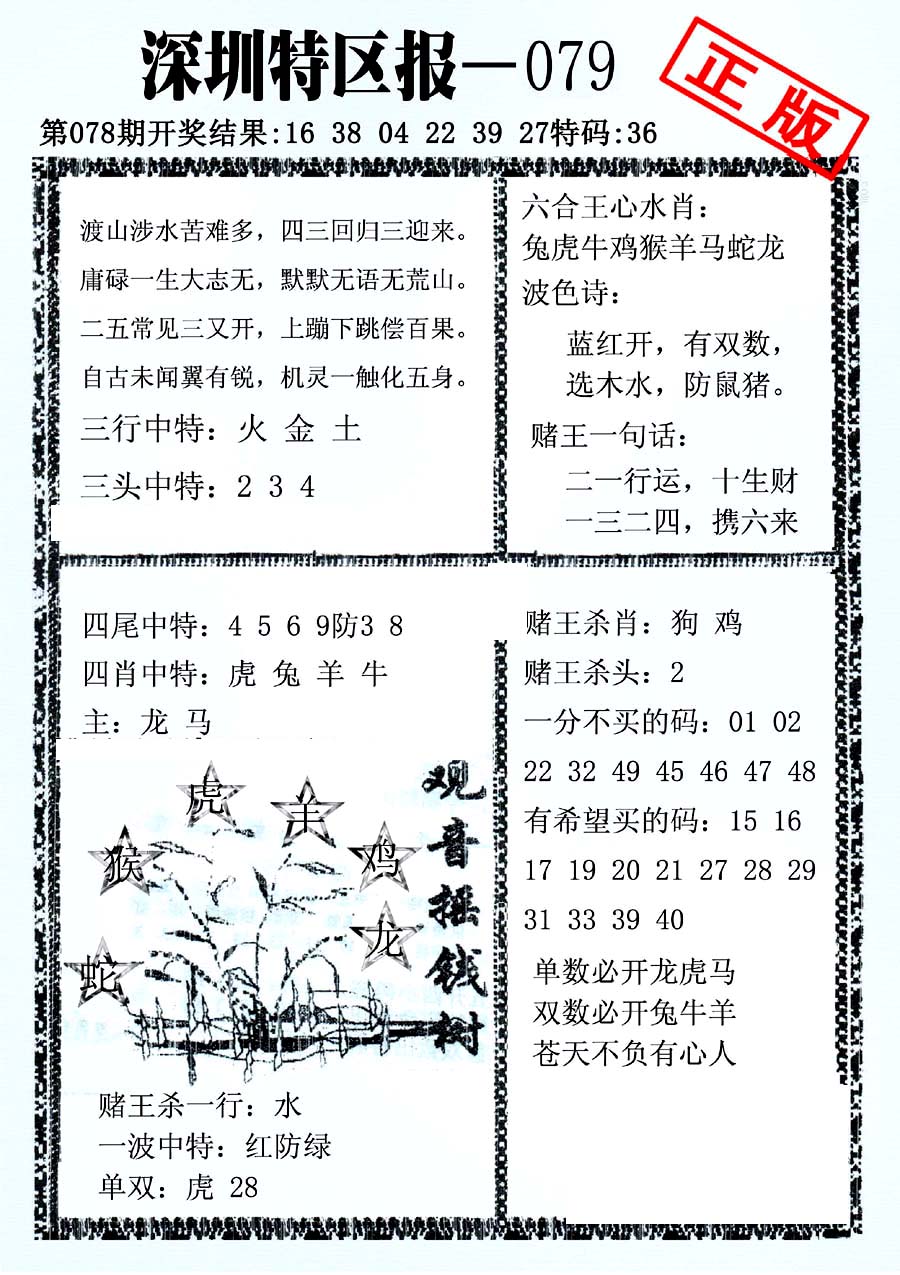 深圳特区报—079
正版
第078期开奖结果:16 38 04 22 39 27特码:36
渡山涉水苦难多，四三回归三迎来。
庸碌一生大志无，默默无语无荒山。
二五常见三又开，上蹦下跳偿百果。
自古未闻翼有锐，机灵一触化五身。
三行中特：火 金 土
三头中特：2 3 4
六合王心水肖：
兔虎牛鸡猴羊马蛇龙
波色诗：
蓝红开，有双数，
选木水，防鼠猪。
赌王一句话：
二一行运，十生财
一三二四，携六来
四尾中特：4 5 6 9防3 8
四肖中特：虎 兔 羊 牛
主：龙 马
虎
羊
猴
鸡
龙
蛇
观音摇钱树
赌王杀一行：水
一波中特：红防绿
单双：虎 28
赌王杀肖：狗 鸡
赌王杀头：2
一分不买的码：01 02
22 32 49 45 46 47 48
有希望买的码：15 16
17 19 20 21 27 28 29
31 33 39 40
单数必开龙虎马
双数必开兔牛羊
苍天不负有心人